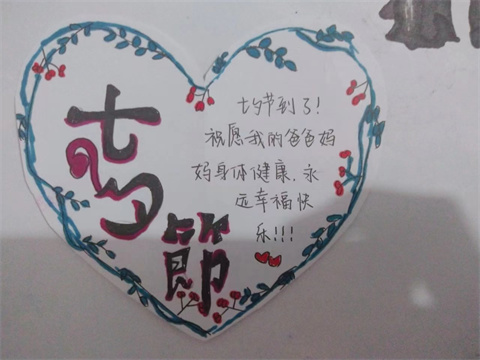 七夕節
七夕节到了!
祝愿我的爸爸妈
妈身体健康、永
远幸福快
乐!!!